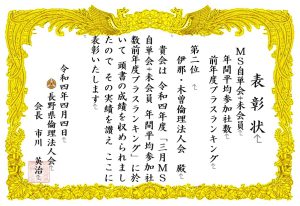 表彰状
MS自単会+未会員
年間平均参加社数
前年度プラスランキング
第二位
伊那・木曽倫理法人会 殿
貴会は 令和四年度「三月MS
自単会+未会員 年間平均参加社
数前年度プラスランキング」に於
いて 頭書の成績を収められまし
たので その実績を讃え ここに
表彰いたします
令和四年四月四日
長野県倫理法人会
会長 市川 英治